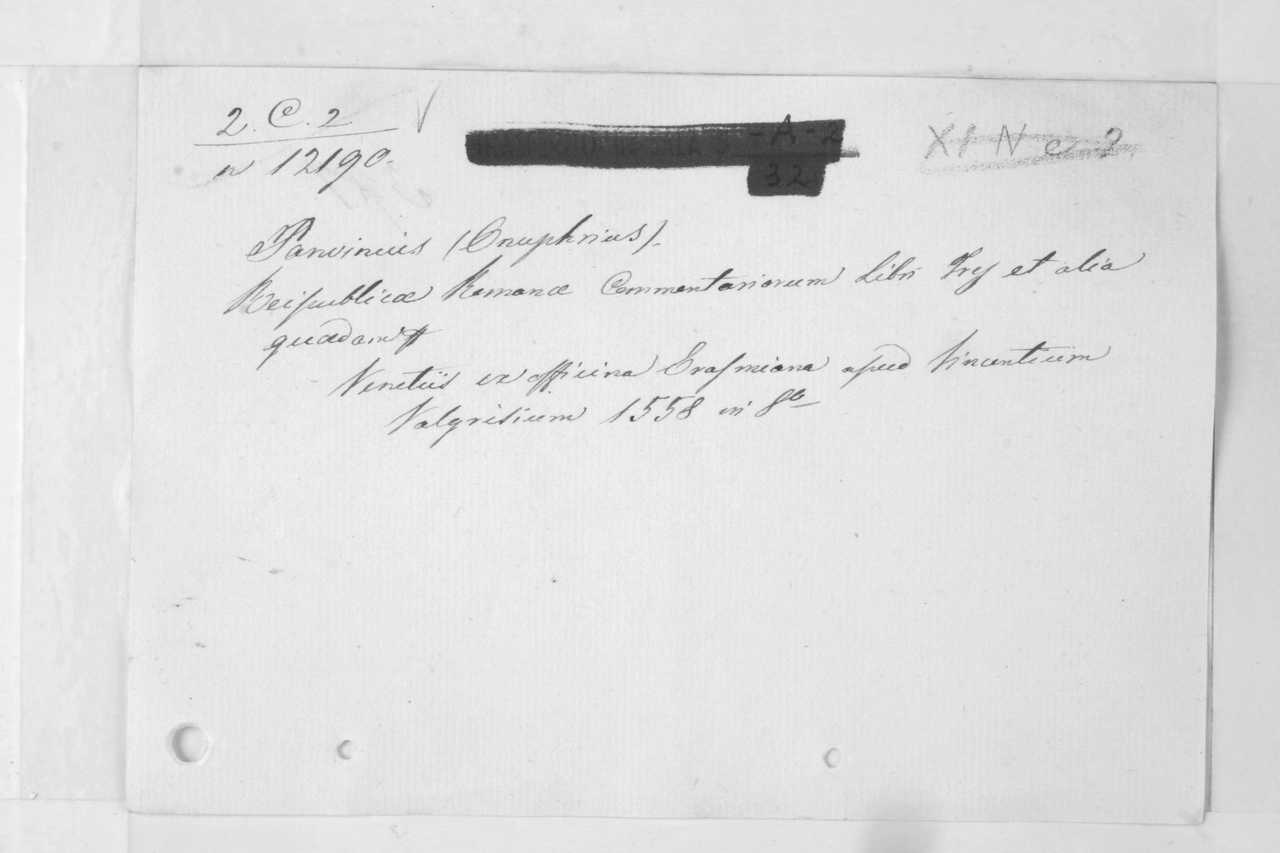 2. C. 2 V
n 12190.
- A - 2
32
XI N e 2
Panvinius (Onuphrius).
Reipublicæ Romanæ Commentariorum Libri Tres et alia
quædam
Venetiis ex officina Erasmiana apud Vincentium
Valgrisium 1558 in 8º